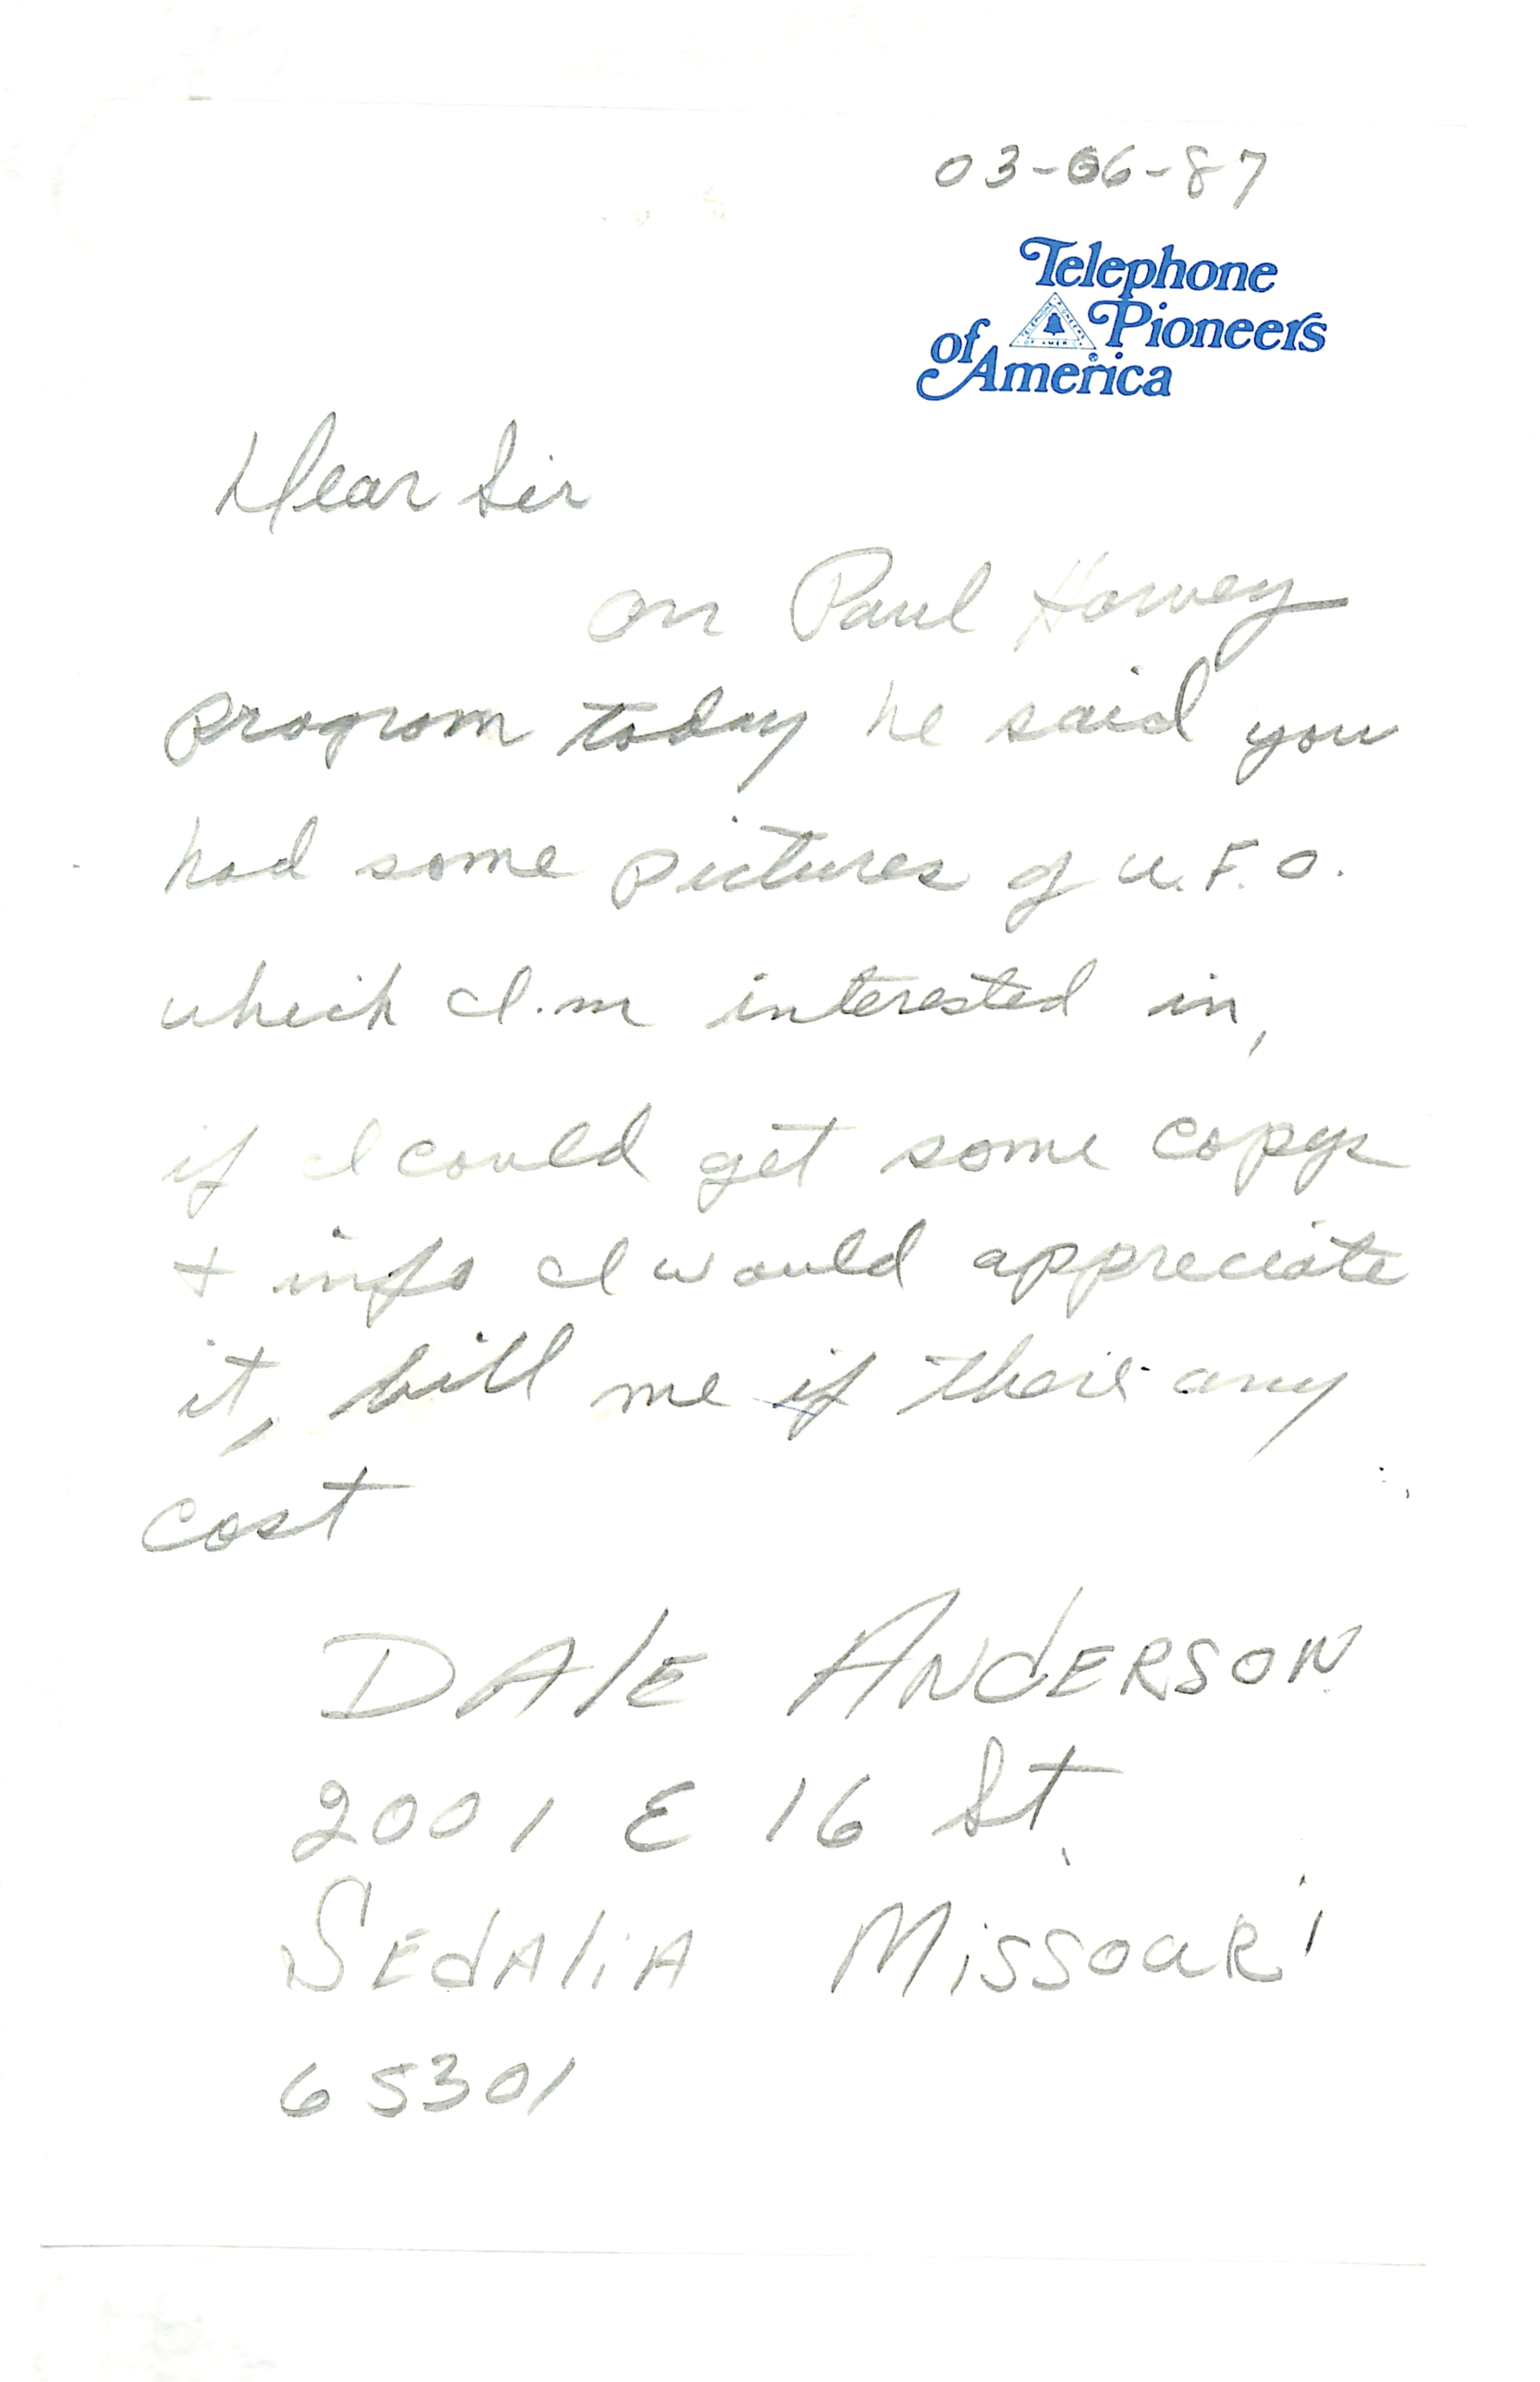 03-06-87
Telephone
Pioneers
of America
Dear Sir
on Paul Harvey
program today he said you
had some pictures of U.F.O.
which I.m interested in,
if I could get some copys
+ info I would appreciate
it, bill me if theirs any
cost
DALE ANDERSON
2001 E 16 St.
SEDALIA MISSOURI
65301